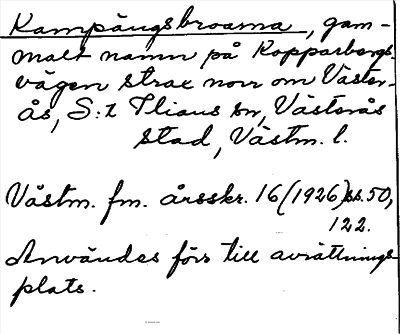 Kampängsbroarna, gam-
malt namn på Kopparbergs-
vägen strax norr om Väster-
ås, S:t Ilians sn, Västerås
stad, Västm. l.
Västm. fm. årsskr. 16 (1926) ss. 50,
122.
Användes förs till avrättnings-
plats.